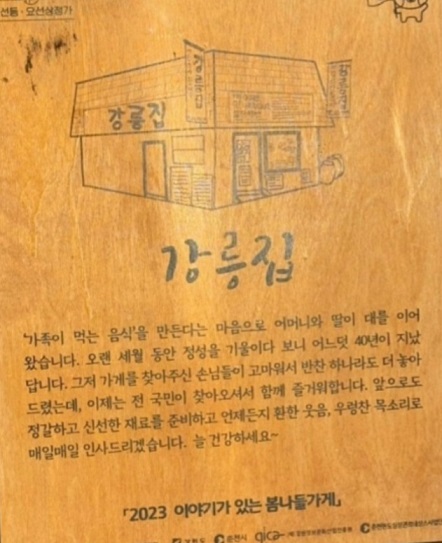 선동·요선상점가
강릉집
강릉집
강릉집
강릉집
'가족이 먹는 음식'을 만든다는 마음으로 어머니와 딸이 대를 이어
왔습니다. 오랜 세월 동안 정성을 기울이다 보니 어느덧 40년이 지났
답니다. 그저 가게를 찾아주신 손님들이 고마워서 반찬 하나라도 더 놓아
드렸는데, 이제는 전 국민이 찾아오셔서 함께 즐거워합니다. 앞으로도
정갈하고 신선한 재료를 준비하고 언제든지 환한 웃음, 우렁찬 목소리로
매일매일 인사드리겠습니다. 늘 건강하세요~
「2023 이야기가 있는 봄나들가게」
강원도 춘천시 gica